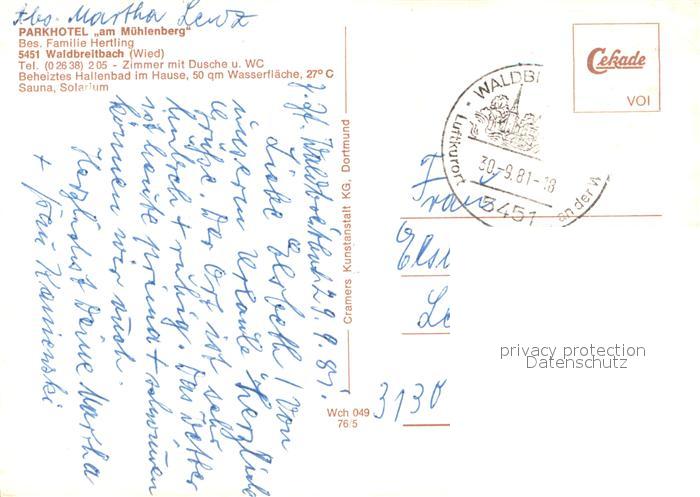 Abs. Martha Lenz
PARKHOTEL „am Mühlenberg"
Bes. Familie Hertling
5451 Waldbreitbach (Wied)
Tel. (0 26 38) 2 05 - Zimmer mit Dusche u. WC
Beheiztes Hallenbad im Hause, 50 qm Wasserfläche, 27° C
Sauna, Solarium
z. Zt. Waldbreitbach 29.9.81.
Liebe Elsbeth! Von
unserm Urlaub herzliche
Grüße. Der Ort ist sehr
hübsch + ruhig. Das Wetter
ist heute prima + schwimmen
können wir auch.
Herzlichst Deine Martha
+ Frau Kaminski
Cramers Kunstanstalt KG, Dortmund
Wch 049
76/5
Cekade
VOI
WALDBI
Luftkurort
30.-9.81-18
5451
an der W
Frau
Elsi
Le
3130
privacy protection
Datenschutz